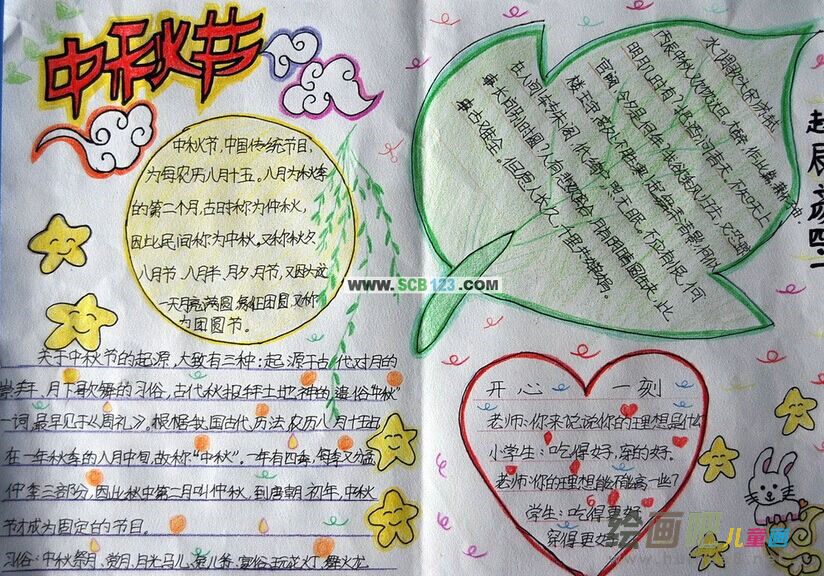 中秋节
中秋节,中国传统节目,
为每农历八月十五。八月为秋季
的第二个月,古时称为仲秋,
因此民间称为中秋。又称秋夕
八月节、八月半、月夕、月节,又因为这
一天月亮满圆,象征团圆,又称
为团圆节。
关于中秋节的起源,大致有三种:起源于古代对月的
崇拜、月下歌舞的习俗,古代秋报拜土地神的遗俗“中秋”
一词,最早见于《周礼》。根据我国古代历法,农历八月十五日
在一年秋季的八月中旬,故称“中秋”。一年有四季,每季又分孟
仲季三部分,因此秋中第二月叫仲秋,到唐朝初年,中秋
节才成为固定的节目。
习俗:中秋祭月、赏月、月光马儿、兔儿爷、宴俗、玩花灯、舞火龙
水调歌头
丙辰中秋,欢饮达旦,大醉,作此篇,兼怀子由。
明月几时有?把酒问青天。不知天上
宫阙,今夕是何年?我欲乘风归去,又恐琼
楼玉宇,高处不胜寒。起舞弄清影,何似
在人间。转朱阁,低绮户,照无眠。不应有恨,何
事长向别时圆?人有悲欢离合,月有阴晴圆缺,此
事古难全。但愿人长久,千里共婵娟。
开心一刻
老师:你来说说你的理想是什么
小学生:吃得好,穿的好.
老师:你的理想能不能高一些?
学生:吃得更好
穿得更好
WWW.SCB123.COM
绘画 儿童画